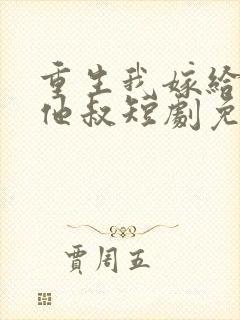 重生我嫁给
他叔短劇免
賈周五